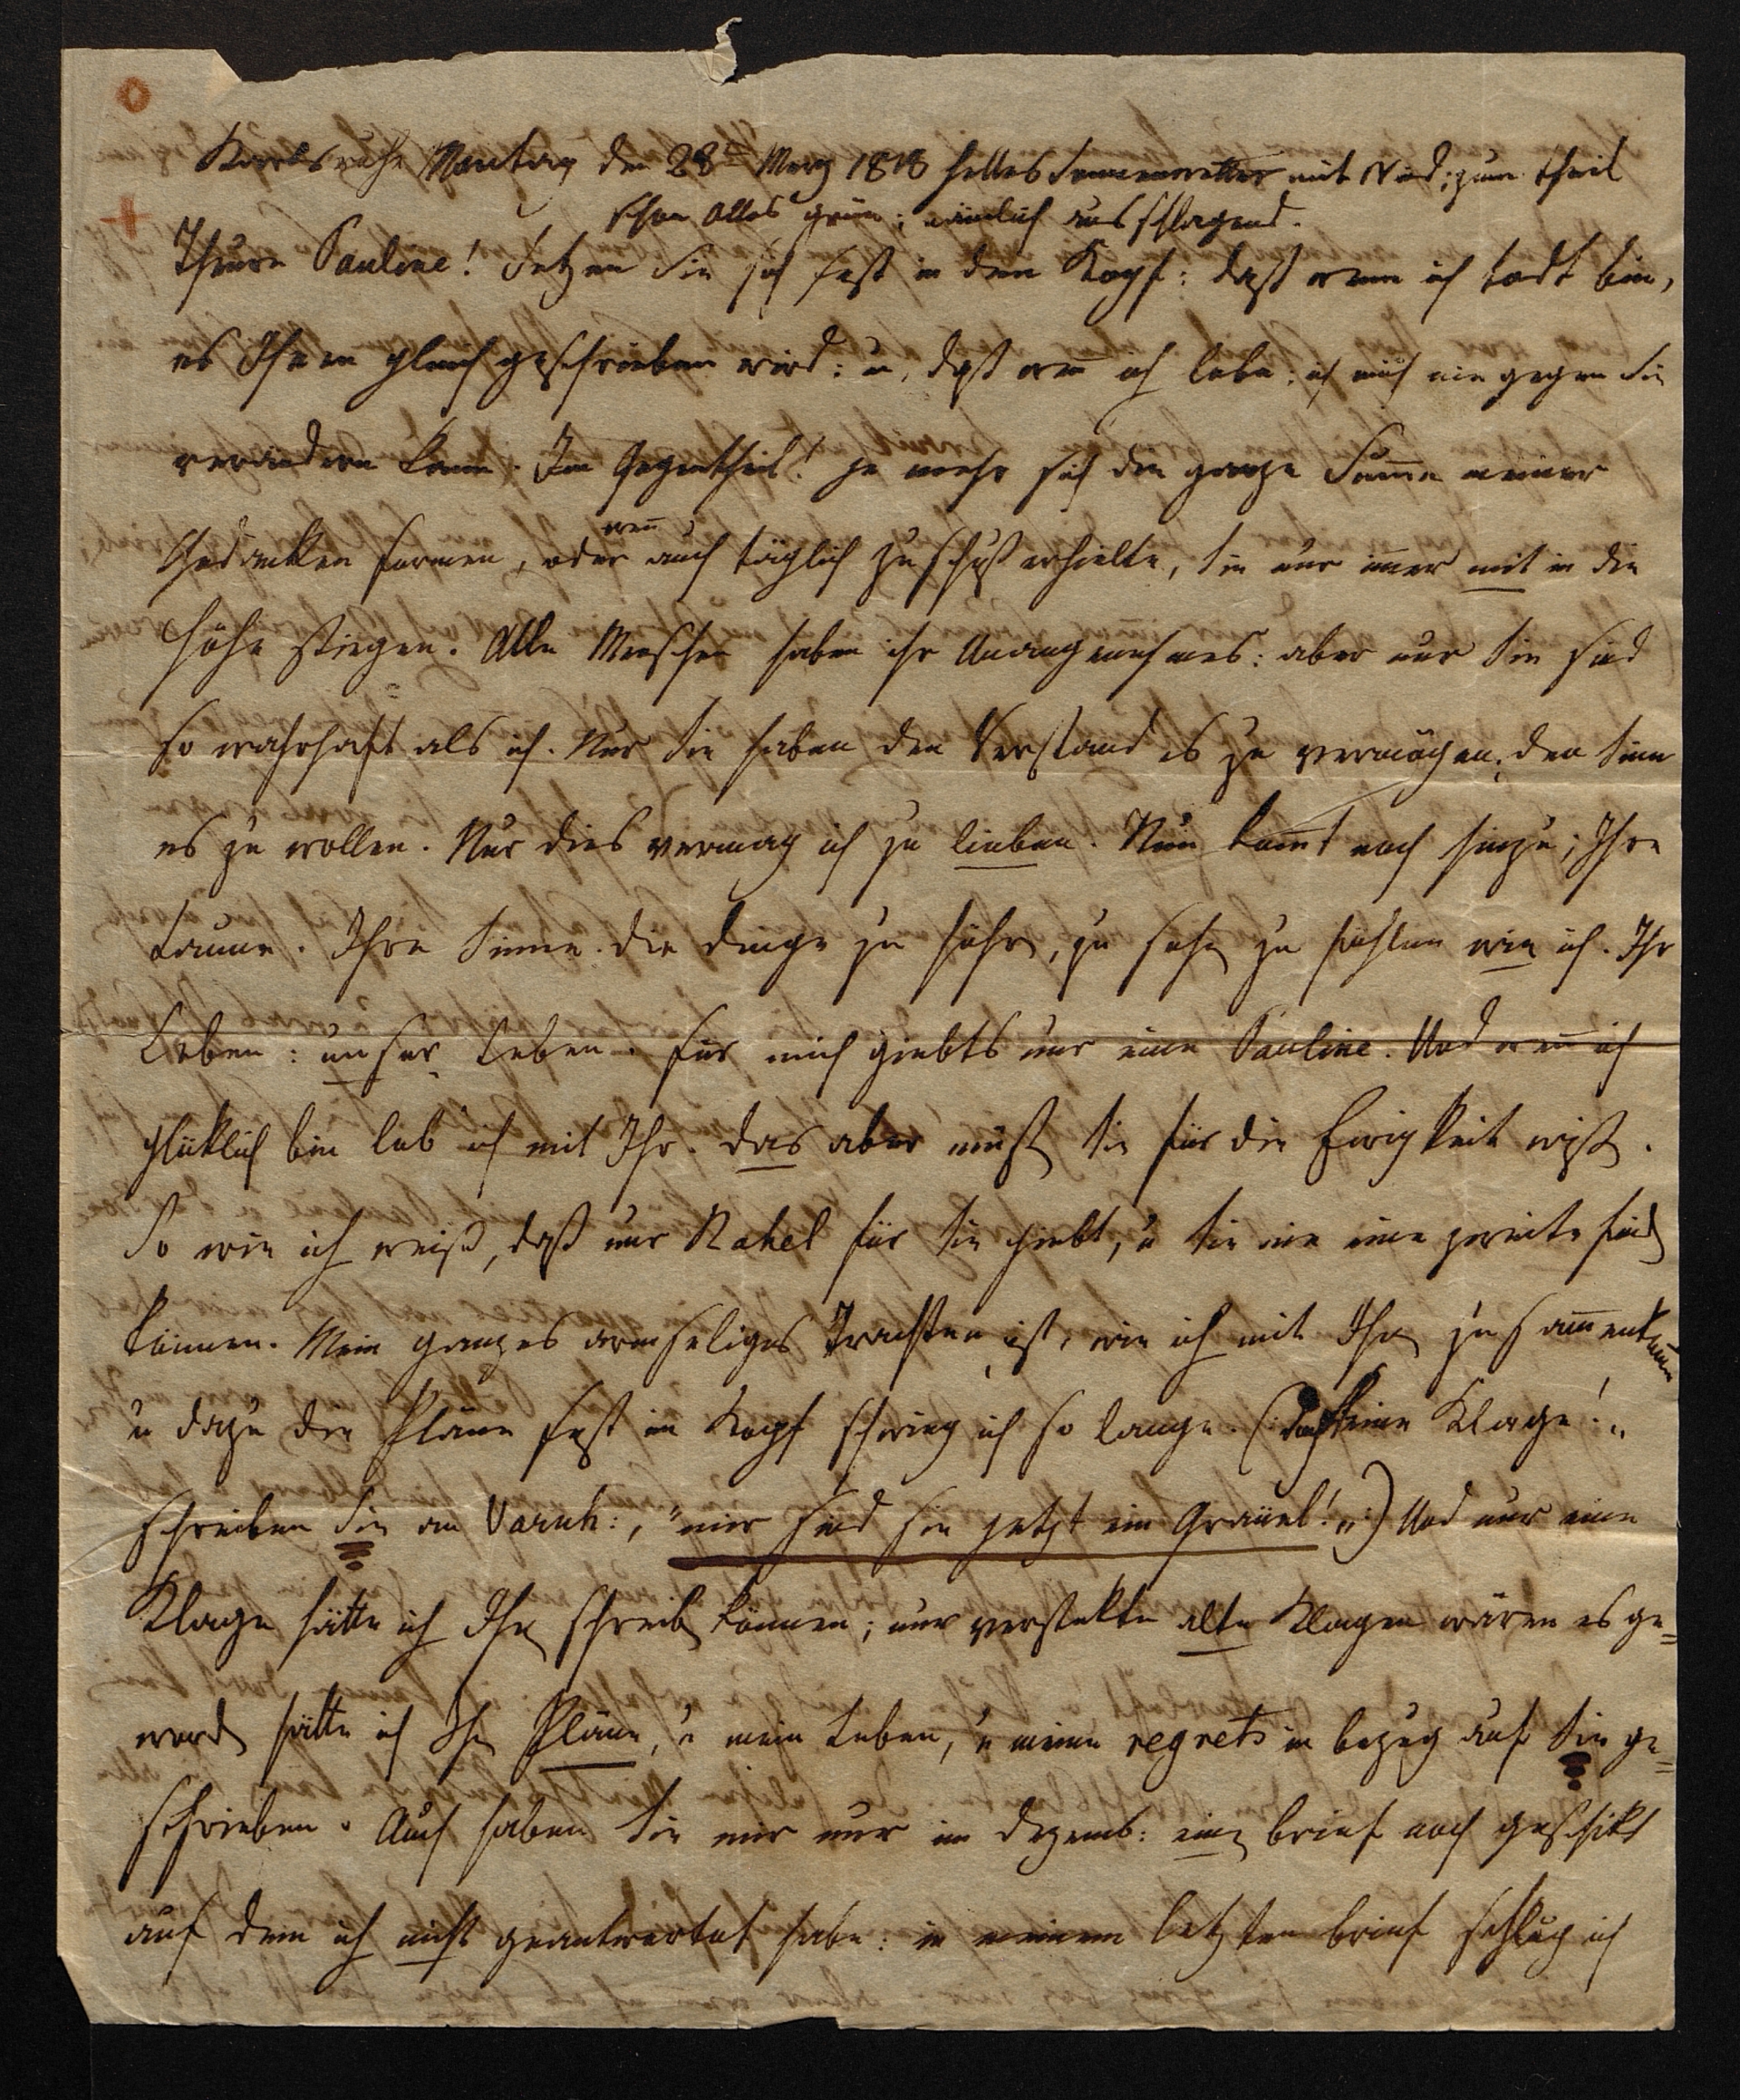 Karlsruhe Montag den 28t Merz 1818 helles Sonnenwetter mit Wind; zum theil
schon Alles grün; nämlich ausschlagend.
Theure Pauline! Setzen Sie sich fest in den Kopf: daß wenn ich todt bin,
es Ihnen gleich geschrieben wird: u, daß weñ ich lebe; ich mich nie gegen Sie
verändern kann. Im Gegentheil! je mehr sich die ganze Sum̃e meiner
Gedankken formen, oder weñ auch täglich Zuschuß erhielte, Sie nur im̃er mit in die
Höhe stiegen. Alle Menschen haben ihr Unangenehmes: aber nur Sie sind
so wahrhaft als ich. Nur Sie haben den Verstand es zu vermögen; den Sinn
es zu wollen. Nur dies vermag ich zu lieben. Nun kom̃t noch hinzu; Ihre
Laune. Ihre Sinne. die dinge zu hören, zu sehen zu fühlen wie ich. Ihr
Leben: unser Leben. Für mich giebts nur eine Pauline. Und weñ ich
glüklich bin leb' ich mit Ihr. das aber müssen Sie für die Ewigkeit wissen.
So wie ich weiß, daß nur Rahel für Sie giebt, u Sie nie eine zweite finden
können. Mein ganzes armseliges Trachten ist, wie ich mit Ihnen zusam̃enkom̃e
u dazu die Pläne fest im Kopf schwieg ich so lange. (: Doch keine Klage! „
schreiben Sie an Varnh:, "mir sind sie jetzt ein Gräuel!„ :) Und nur eine
Klage hätte ich Ihnen schreiben können; nur verstekte alte Klagen wären es ge=
worden hätte ich Ihnen Pläne, u mein Leben, u meine regrets in bezug auf Sie ge=
schrieben. Auch haben Sie mir nur im Dezemb: einen brief noch geschikt
auf dem ich nicht geantwortet habe: in meinem letzten brief schlug ich